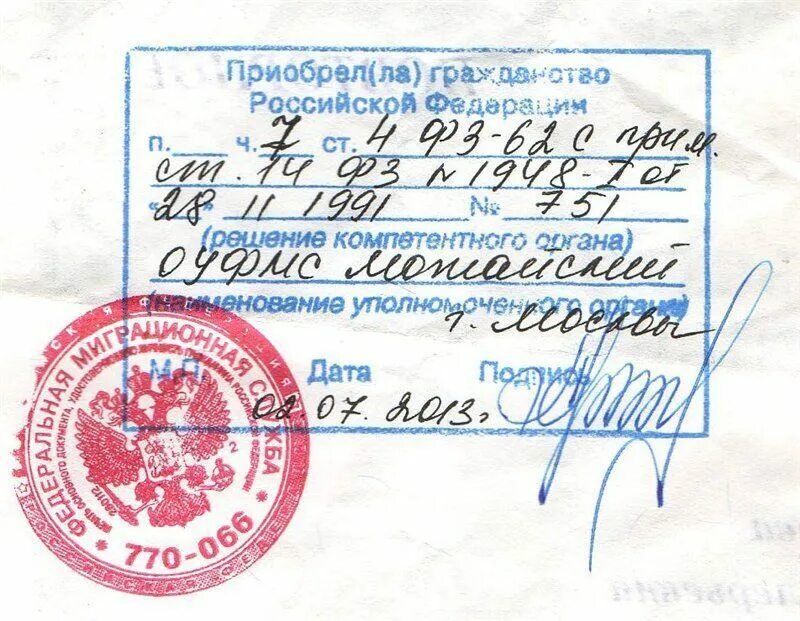 Приобрел(ла) гражданство
Российской Федерации
п.____ ч. 7 ст. 4 ФЗ-62 с прим.
ст. 14 ФЗ №1948-I от
«28» 11 1991 № 751
(решение компетентного органа)
ОУФМС Можайский
(наименование уполномоченного органа)
г. Москвы
М.П. Дата Подпись
02.07.2013г
ФЕДЕРАЛЬНАЯ МИГРАЦИОННАЯ СЛУЖБА
* 770-066 *
2